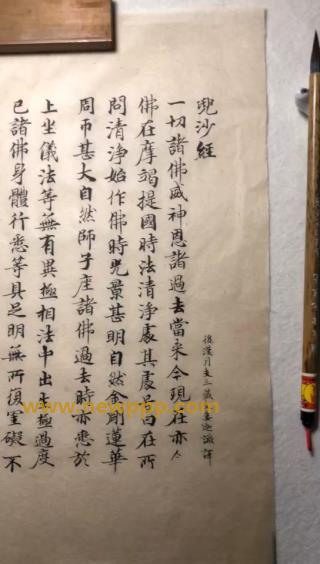 兜沙經
後漢月支三藏婁迦讖譯
一切諸佛威神恩諸過去當来今現在亦尒
佛在摩竭提國時法清淨處其處曰在所
問清淨始作佛時光景甚明自然金剛蓮華
周帀甚大自然師子座諸佛過去時亦悉於
上坐儀法等無有異極相法中出極過度
已諸佛身體行悉等具足明無所復罣礙不
www.newppp.com